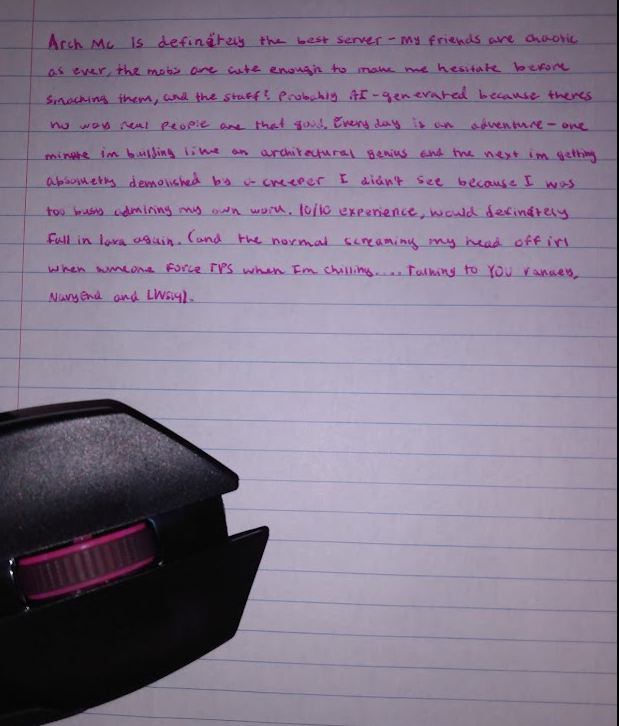 Arch Mc is definetely the best server - my friends are chaotic
as ever, the mobs are cute enough to make me hesitate before
smacking them, and the staff? Probably AI-generated because theres
no way real people are that good. Every day is an adventure - one
minute im building like an architectural genius and the next im getting
absolutely demolished by a creeper I didn't see because I was
too busy admiring my own work. 10/10 experience, would definetely
fall in lava again. (and the normal screaming my head off irl
when someone force TPS when Im chilling.... Talking to YOU
NavyEnd and